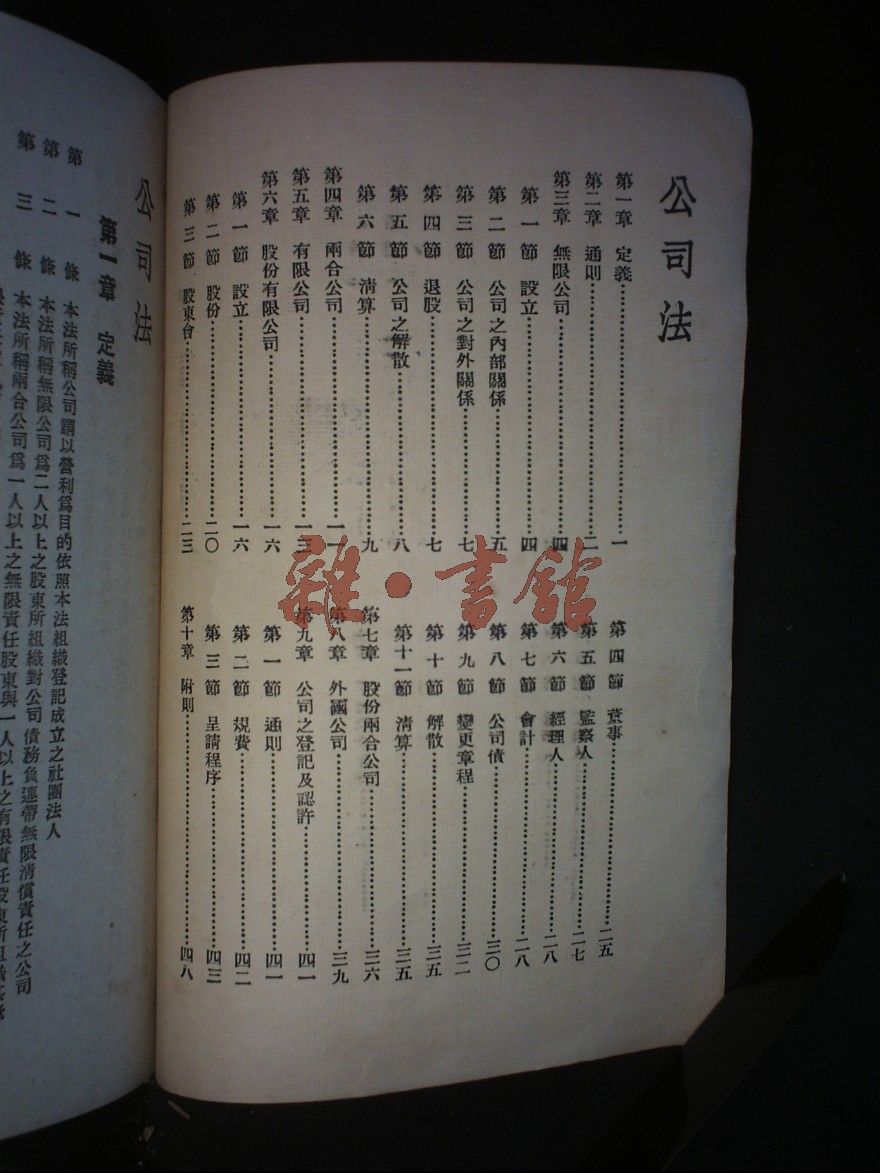 公司法
第一章 定義……一
第二章 通則……二
第三章 無限公司……四
第一節 設立……四
第二節 公司之內部關係……五
第三節 公司之對外關係……七
第四節 退股……七
第五節 公司之解散……八
第六節 清算……九
第四章 兩合公司……一一
第五章 有限公司……一三
第六章 股份有限公司……一六
第一節 設立……一六
第二節 股份……二〇
第三節 股東會……二三
第四節 董事……二五
第五節 監察人……二七
第六節 經理人……二八
第七節 會計……二八
第八節 公司債……三〇
第九節 變更章程……三二
第十節 解散……三五
第十一節 清算……三五
第七章 股份兩合公司……三六
第八章 外國公司……三九
第九章 公司之登記及認許……四一
第一節 通則……四一
第二節 規費……四二
第三節 呈請程序……四三
第十章 附則……四八
雜·書館
公司法
第一章 定義
第一條 本法所稱公司謂以營利爲目的依照本法組織登記成立之社團法人
第二條 本法所稱無限公司爲二人以上之股東所組織對公司債務負連帶無限清償責任之公司
第三條 本法所稱兩合公司爲一人以上之無限責任股東與一人以上之有限責任股東所組織